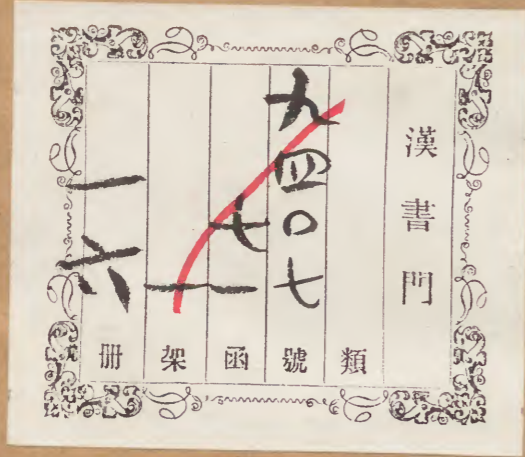 漢書門類
九四〇七號
七函
一架
一六冊